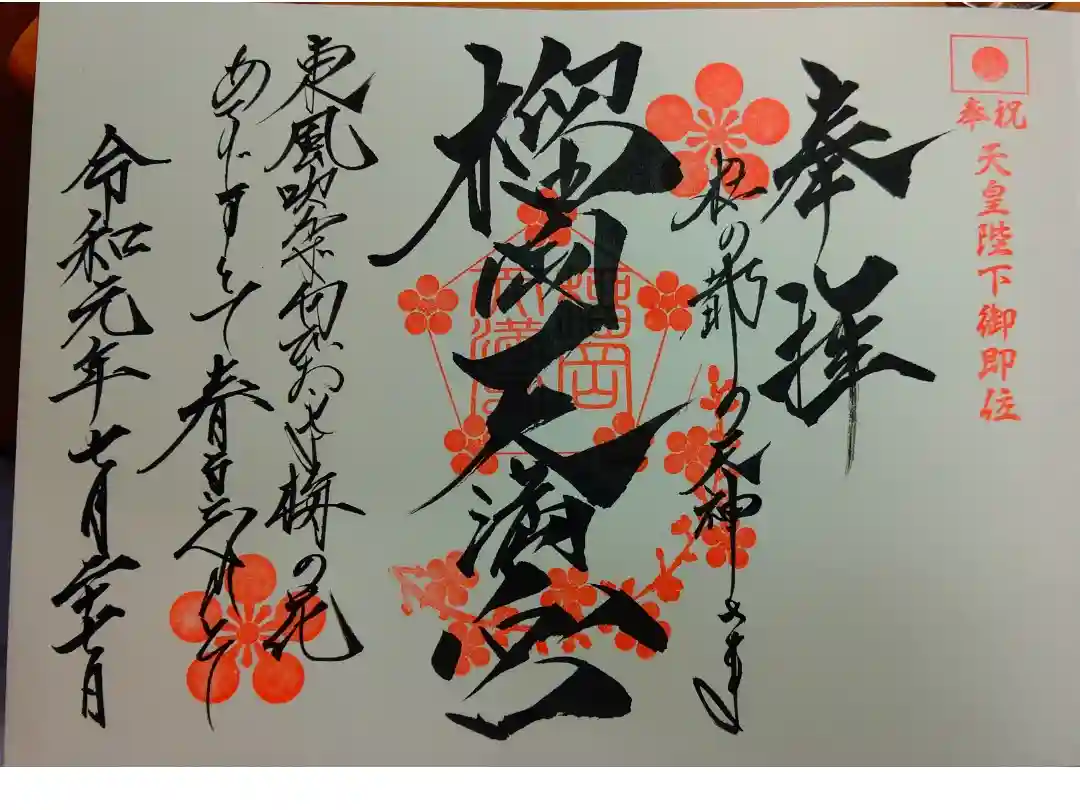 奉祝
天皇陛下御即位
奉拝
杜の都の天神さま
榴岡天満宮
東風吹かば匂ひおこせよ梅の花
あるじなしとて春な忘れそ
令和元年七月二十七日